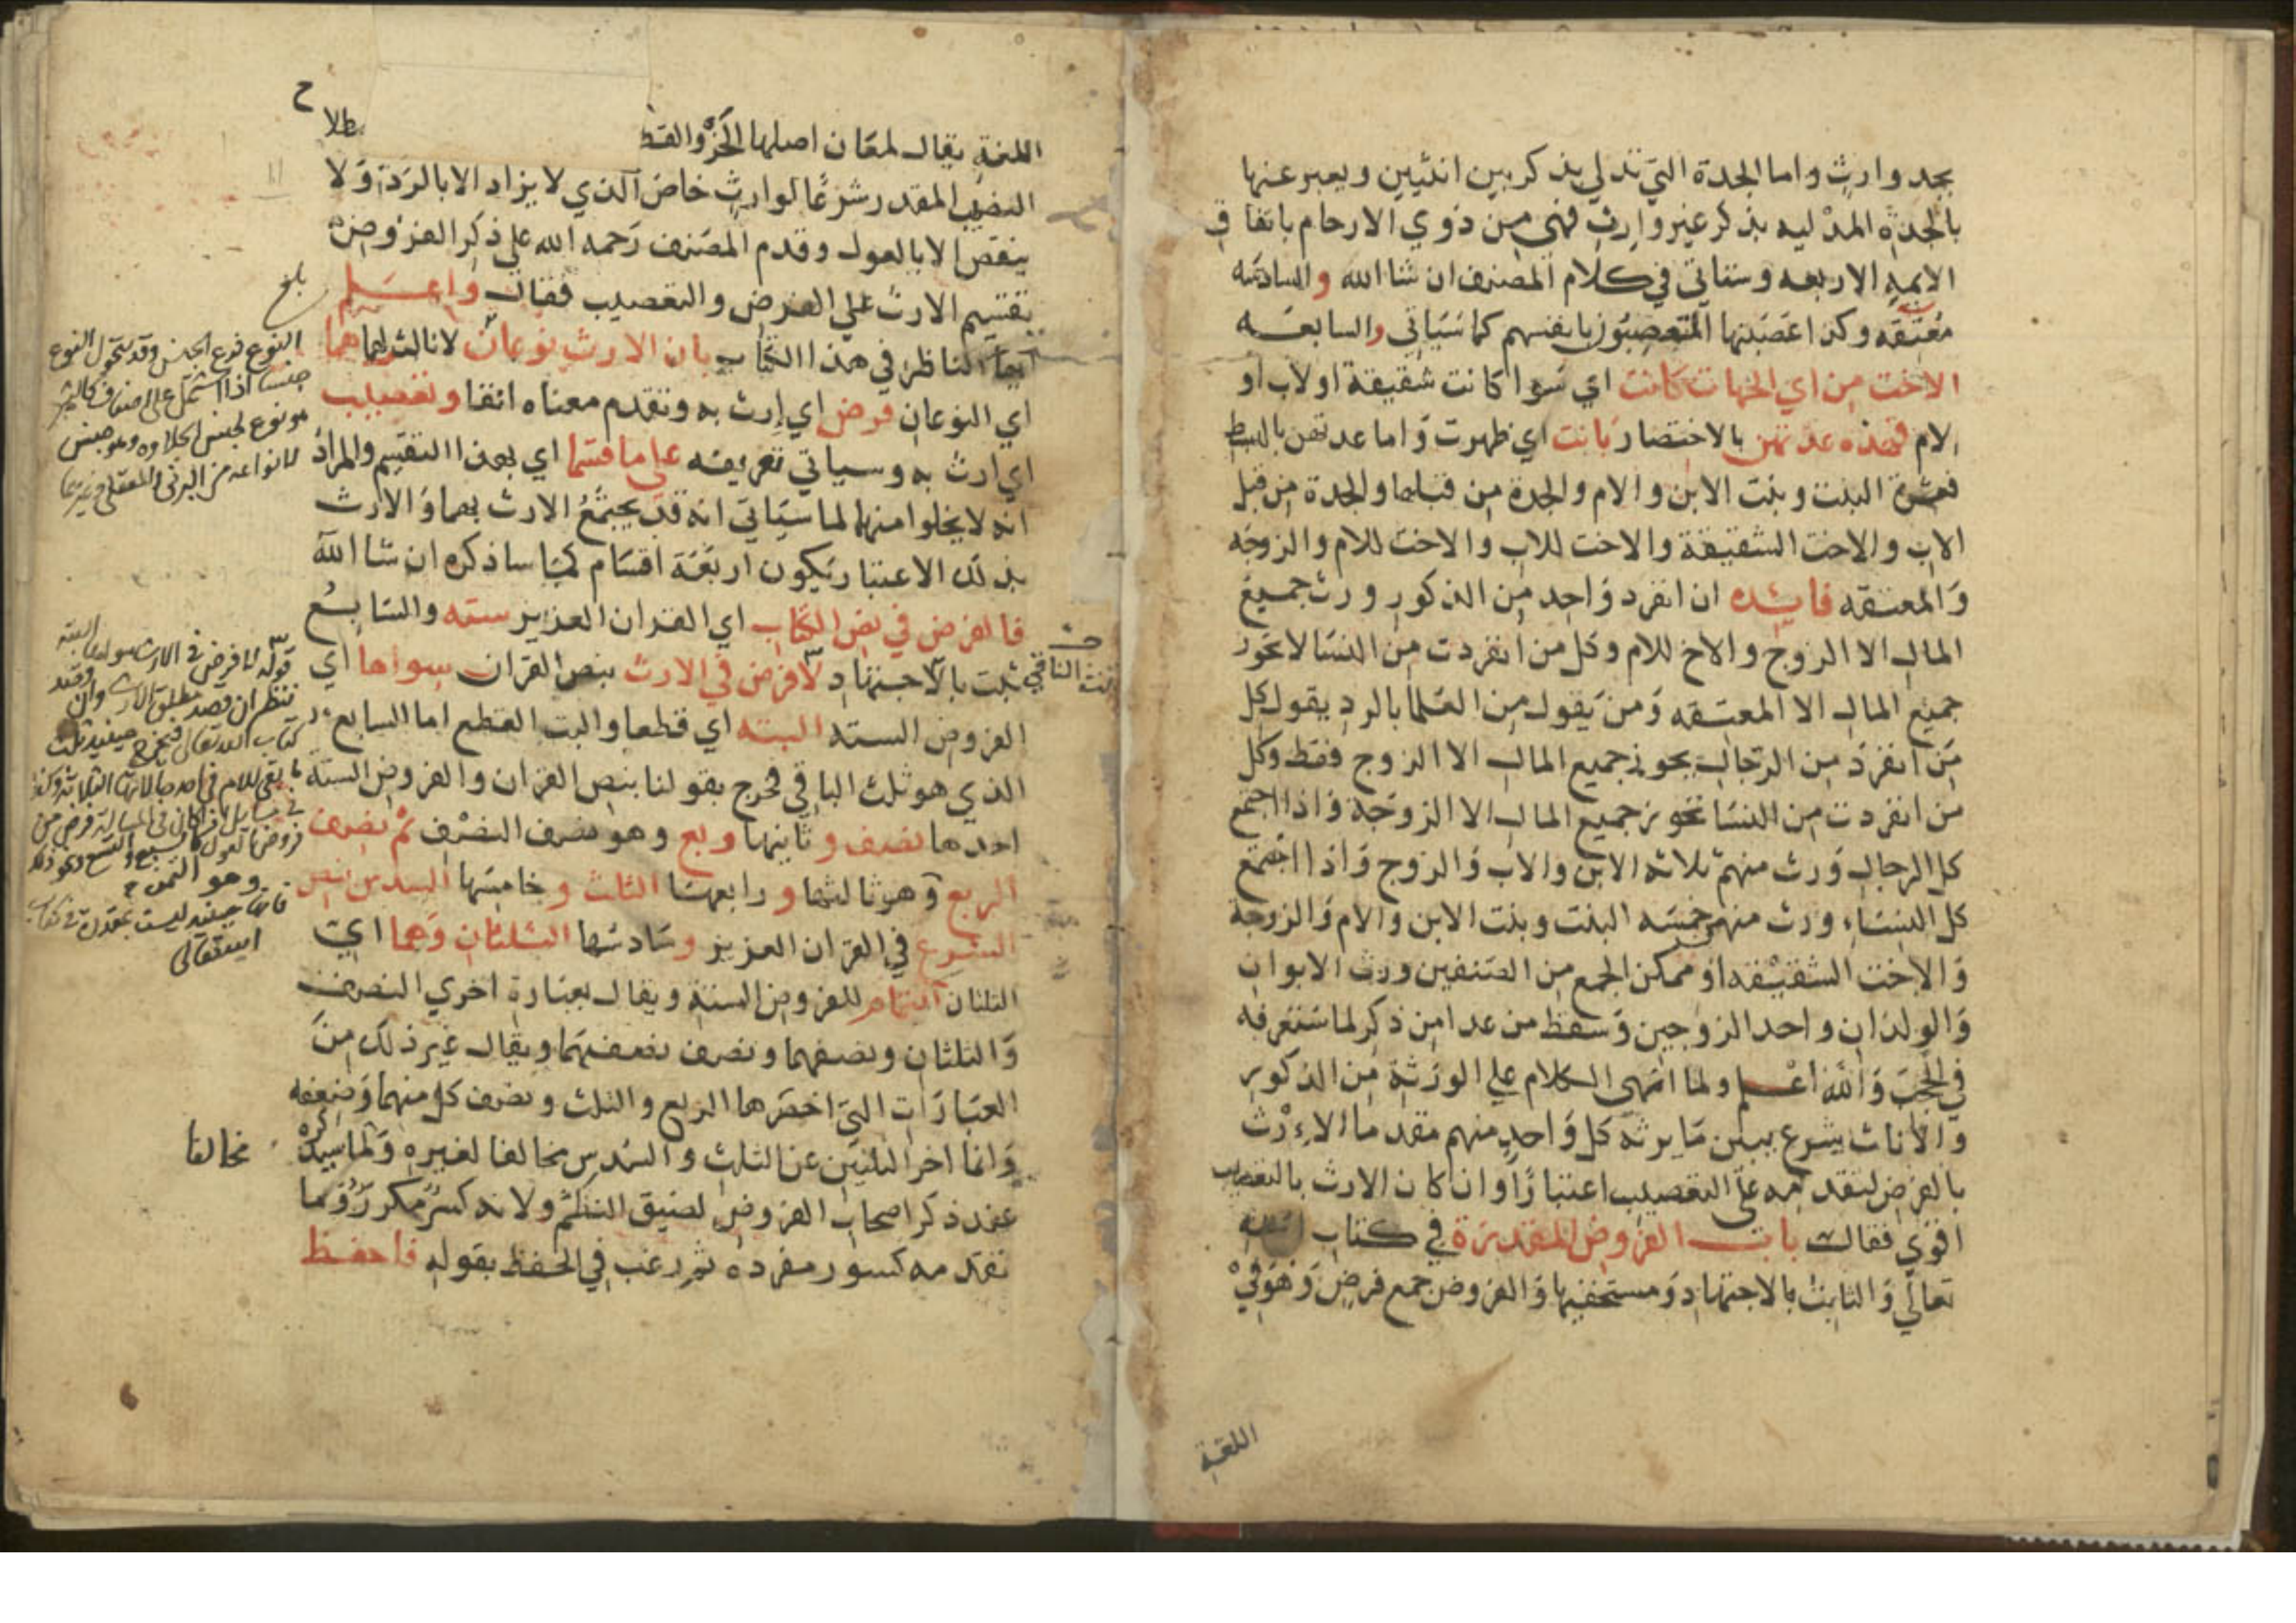 بجد وارث واما الجدة التي تدلي بذكر بين انثيين ويعبر عنها
بالجدة المدليه بذكر غير وارث فهي من ذوي الارحام باتفاق
الايمة الاربعه وستاتي في كلام المصنف ان شا الله والسادسه
معتقه وكذا عصبتها المتعصبون بانفسهم كما سياتي والسابعه
الاخت من اي الجهات كانت اي سوا كانت شقيقة او لاب او
لام فهذه عدتهن بالاختصار بانت اي ظهرت واما عدتهن بالبسط
فعشرة البنت وبنت الابن والام والجدة من قبلها والجدة من قبل
الاب والاخت الشقيقة والاخت للاب والاخت للام والزوجه
والمعتقه فايده ان انفرد واحد من الذكور ورث جميع
المال الا الزوج والاخ للام وكل من انفردت من النسا لا تحوز
جميع المال الا المعتقه ومن يقول من العلما بالرد يقول كل
من انفرد من الرجال يحوز جميع المال الا الزوج فقط وكل
من انفردت من النسا تحوز جميع المال الا الزوجة واذا اجتمع
كل الرجال ورث منهم ثلاثه الابن والاب والزوج واذا اجتمع
كل النساء ورث منهم خمسه البنت وبنت الابن والام والزوجة
والاخت الشقيقه او ممكن الجمع من الصنفين ورث الابوان
والولدان واحد الزوجين وسقط من عدا من ذكر لما ستعرفه
في الحجب والله اعلم ولما انتهى الكلام علي الورثة من الذكور
والاناث شرع يبين ما يرثه كل واحد منهم مقدما الارث
بالفرض لتقدمه على التعصيب اعتبارا وان كان الارث بالتعصيب
اقوي فقال باب الفروض المقدرة في كتاب الله
تعالي والثابت بالاجتهاد ومستحقيها والفروض جمع فرض وهو في
اللغة
اللغة يقال لمعان اصلها الحز والقط
النصيب المقدر شرعا لوارث خاص الذي لا يزاد الا بالرد ولا
ينقص الا بالعول وقدم المصنف رحمه الله علي ذكر الفروض
تقسيم الارث علي الفرض والتعصيب فقال واعلم
ايها الناظر في هذا الكتاب بان الارث نوعان لا ثالث لهما هما
اي النوعان فرض اي ارث به وتقدم معناه انفا وتعصيب
اي ارث به وسياتي تعريفه على ما قسما اي بهذا التقسيم والمراد
انه لا يخلوا منهما لما سياتي انه قد يجتمع الارث بهما والارث
بذلك الاعتبار يكون اربعة اقسام كما ساذكره ان شا الله
فالفرض في نص الكتاب اي القران العزيز سته والسابع
ثبت بالاجتهاد لا فرض في الارث بنص القران سواها اي
الفروض السته البته اي قطعا والبت القطع اما السابع
الذي هو ثلث الباقي فخرج بقولنا بنص القران والفروض السته
احدها نصف وثانيها ربع وهو نصف النصف ثم نصف
الربع وهو ثالثها ورابعها الثلث وخامسها السدس بنص
الشرع في القران العزيز وسادسها الثلثان وهما اي
الثلثان التمام للفروض الستة ويقال بعبارة اخري النصف
والثلثان ونصفهما ونصف نصفهما ويقال غير ذلك من
العبارات التي اخصرها الربع والثلث ونصف كل منهما وضعفه
وانما اخر الثلثين عن الثلث والسدس مخالفا لغيره ولما سيذكره
عند ذكر اصحاب الفروض لضيق النظم ولانه كسر مكرر وما
تقدمه كسور مفردة ثم رغب في الحفظ بقوله فاحفظ
بلغ
النوع فرع الجنس وقد يتحول النوع
جنسا اذا اشتمل على اصناف كالتمر
هو نوع لجنس الحلاوه وهو جنس
لانواعه من البرني والمعقلي وغيرهما
ثلث الباقي
قوله لا فرض في الارث سواها البته
كتاب الله تعالى فيخرج حينئذ ثلث
وهو التسع
مخالفا